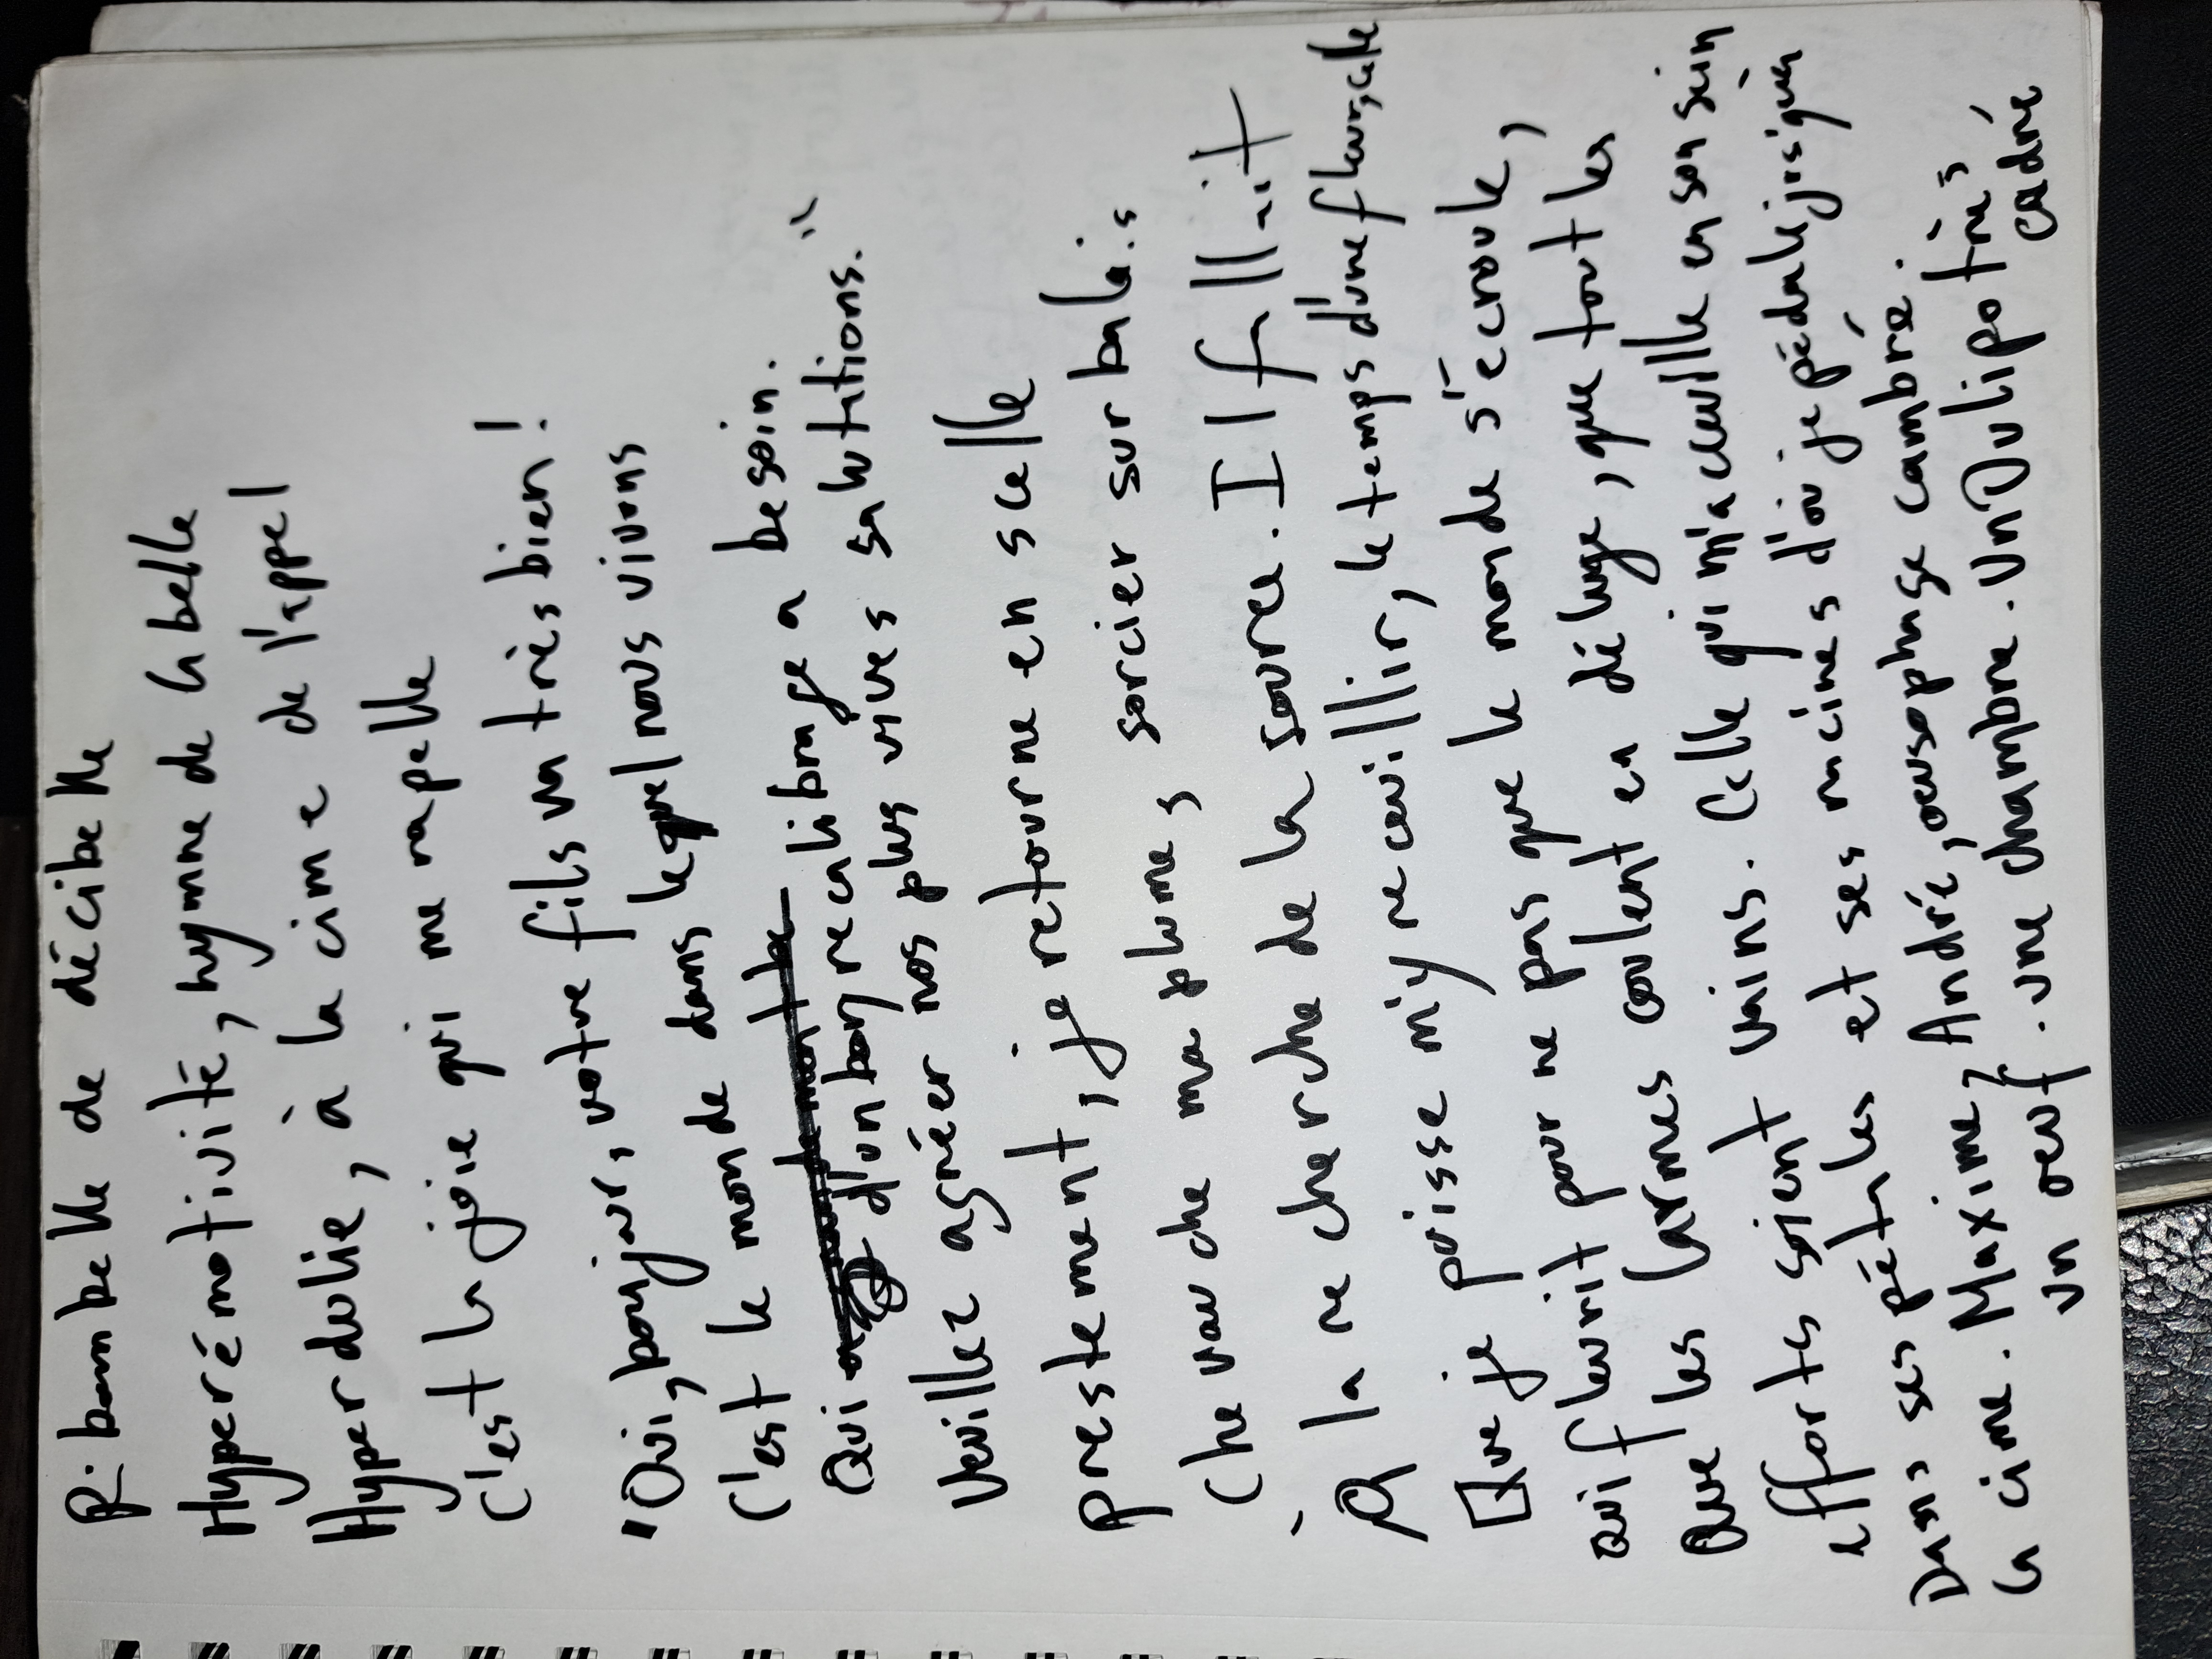 Ribambelle de décibelle
Hyperémotivité, hymne de la belle
Hyperdulie, à la cime de l'appel
C'est la joie qui me rapelle
"Oui, bonjour, votre fils va très bien!
C'est le monde dans lequel nous vivons
Qui d'un bon recalibrage a besoin.
Veuillez agréer nos plus vives salutations."
prestement, je retourne en scelle
Chevauche ma plume, sorcier sur balais
À la recherche de la source. Il fallait
Que je puisse m'y recueillir, le temps d'une fleurscule
qui fleurit pour ne pas que le monde s'écroule,
Que les larmes coulent en déluge, que tout les
efforts soient vains. Celle qui m'acceuille en son sein
Dans ses pétales et ses racines d'où je pédale jusqu'en
la cime. Maxime, André, ouesophage cambré.
un oeuf. une chambre. un Oulipo très cadré